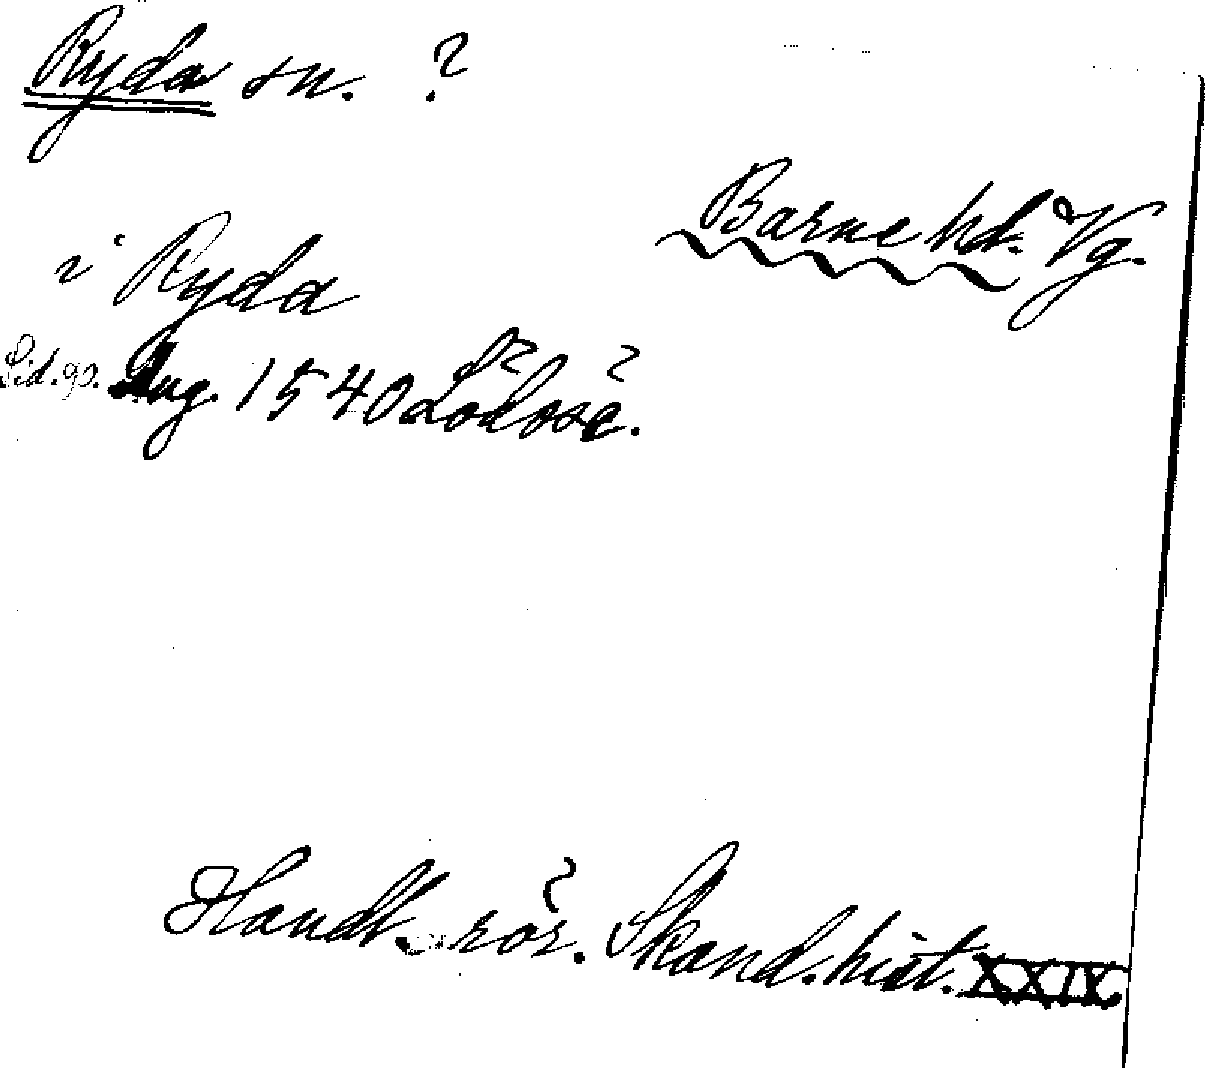 Ryda sn. ?
Barne hd. Vg.
i Ryda
Sid. 90. Aug. 1540 Lödöse.
Handl. rör. Skand. hist. XXIX.